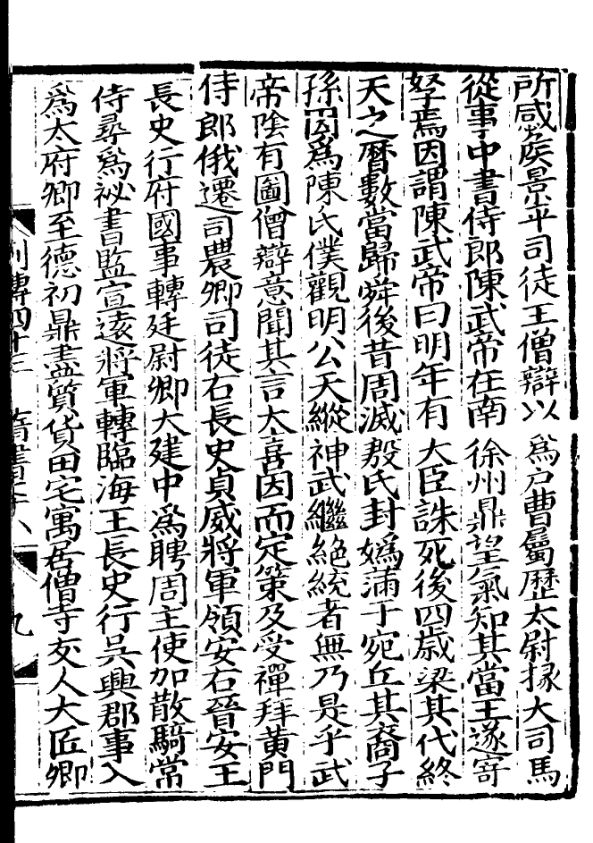 所感矦景平司徒王僧辯以爲戸曹屬歷太尉掾大司馬
從事中書侍郎陳武帝在南徐州鼎望氣知其當王遂寄
孥焉因謂陳武帝曰明年有大臣誅死後四歲梁其代終
天之曆數當歸舜後昔周滅殷氏封嬀滿于宛丘其裔子
孫因爲陳氏僕觀明公天縱神武繼絶統者無乃是乎武
帝隂有圖僧辯意聞其言大喜因而定策及受禪拜黄門
侍郎俄遷司農卿司徒右長史貞威將軍領安右晉安王
長史行府國事轉廷尉卿大建中爲聘周主使加散騎常
侍尋爲祕書監宣遠將軍轉臨海王長史行吳興郡事入
爲太府卿至德初鼎盡質貨田宅寓居僧寺友人大匠卿
列傳四十三
九